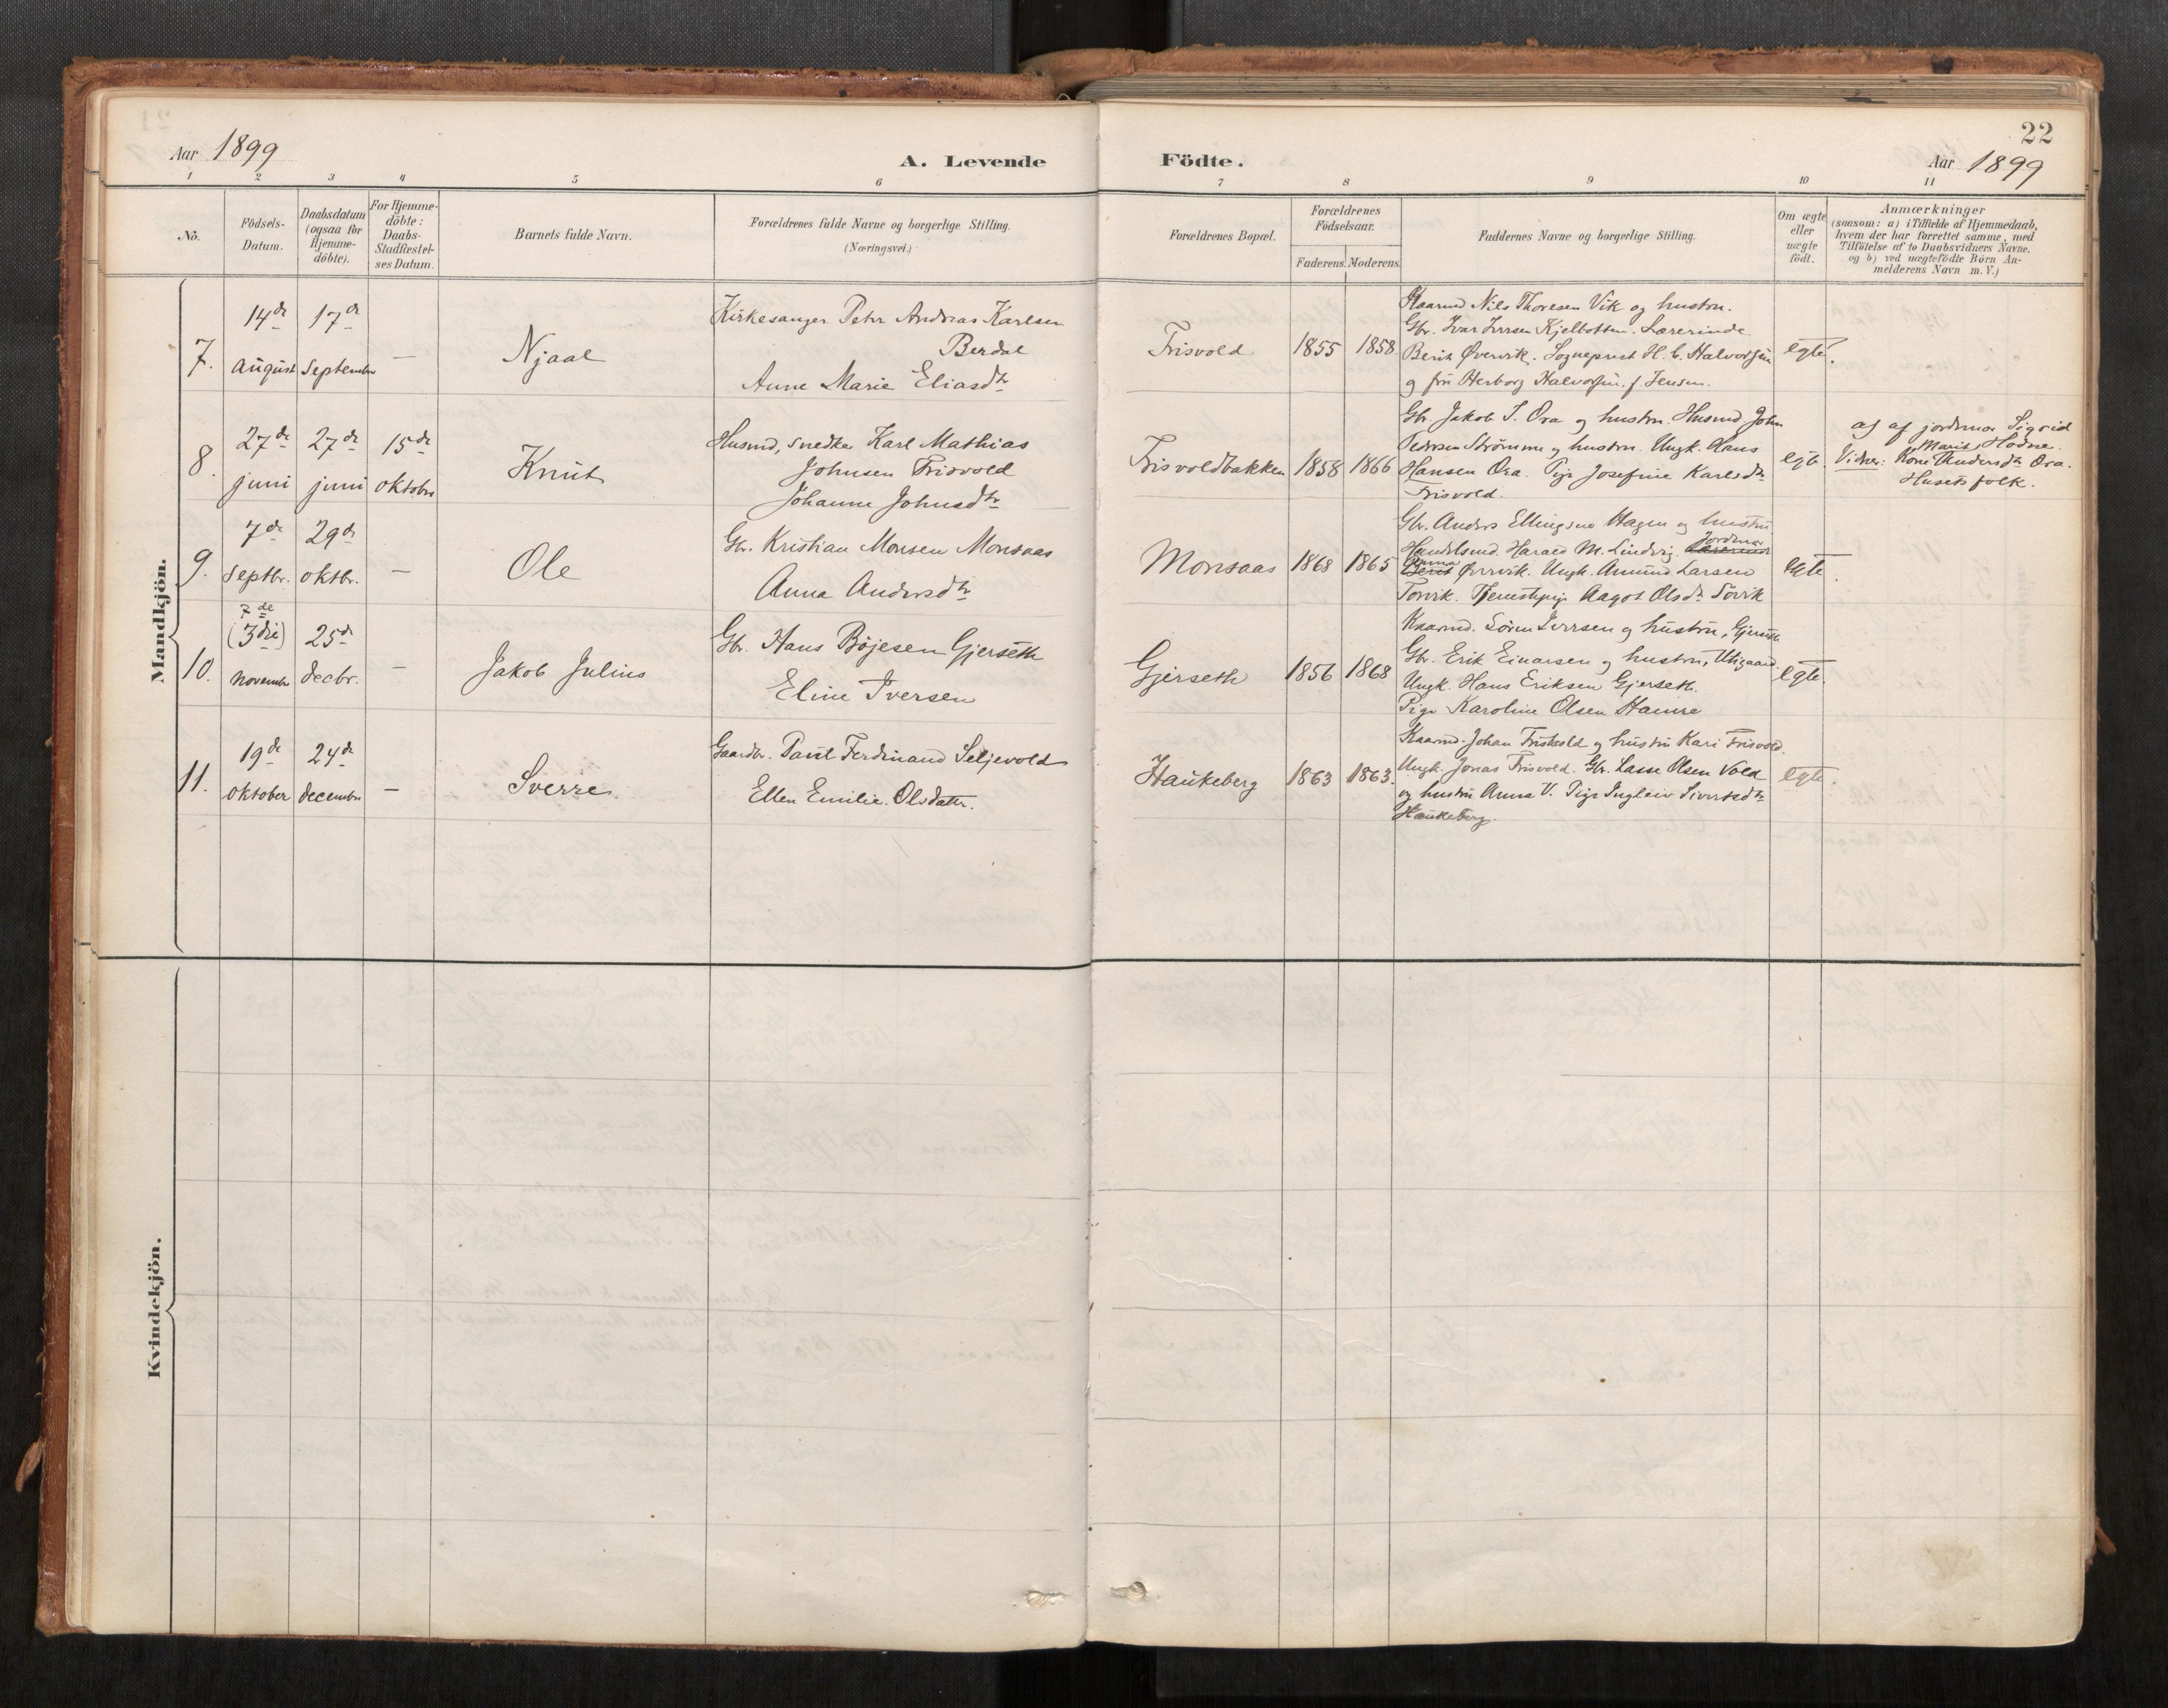 22
Aar 1899
A. Levende Födte.
Aar 1899
1 2 3 4 5 6 7 8 9 10 11
No.
Födsels-Datum.
Daabsdatum (ogsaa for Hjemme-döbte).
For Hjemme-döbte: Daabs-Stadfæstel-ses Datum.
Barnets fulde Navn.
Forældrenes fulde Navne og borgerlige Stilling.
(Næringsvei.)
Forældrenes Bopæl.
Forældrenes Födselsaar.
Faderens. Moderens.
Faddernes Navne og borgerlige Stilling.
Om ægte eller uægte födt.
Anmærkninger
(saasom: a) i Tilfælde af Hjemmedaab,
hvem der har forrettet samme, med
Tilföielse af to Daabsvidners Navne,
og b) ved uægtefödte Börn An-
melderens Navn m. V.)
Mandkjön.
7.
14de August
17de September
—
Njaal
Kirkesanger Peter Andreas Karlsen
Berdal
Anne Marie Eliasdtr
Frisvold
1855 1858
Kaarmd Nils Thoresen Vik og hustru.
Gbr. Ivar Iversen Kjelbotten. Lærerinde
Berit Øvervik. Sogneprest H. C. Halvorsen
og fru Herborg Halvorsen. f. Jensen.
egte.
8.
27de juni
27de juni
15de oktober
Knut
Husmd, snedker Karl Mathias
Johnsen Frisvold
Johanne Johnsdtr
Frisvoldbakken
1858 1866
Gbr. Jakob I. Ora og hustru. Husmd John
Pedersen Strømme og hustru. Ungk. Hans
Hansen Ora. Pige Josefine Karlsdtr
Frisvold.
egte.
a) af jordmor Sigrid
Hodne.
Vidner: Kone Marit Andersdtr Ora.
Husets folk.
9.
7de Septbr.
29de oktbr.
—
Ole
Gbr. Kristian Monsen Monsaas
Anna Andersdtr
Monsaas
1868 1865
Gbr. Anders Ellingsen Hagen og hustru
Handelsmd. Harald M. Lindvig. Lærerinde Jordmor
Berit Øvervik. Ungk. Amund Larsen
Torvik. Tjenestepige Aagot Olsdtr Sørvik
egte.
10.
7de
(3die)
Novembr
25de decbr.
—
Jakob Julius
Gbr. Hans Böjesen Gjerseth
Eline Iversen
Gjerseth
1856 1868
Kaarmd. Sören Iversen og hustru, Gjerseth
Gbr. Erik Einarsen og hustru, Utigaard.
Ungk. Hans Eriksen Gjerseth.
Pige Karoline Olsen Hamre
egte.
11.
19de oktober
24de decembr
—
Sverre
Gaardbr. Paul Ferdinand Seljevold
Ellen Emilie Olsdatter.
Haukeberg
1863 1863.
Kaarmd. Johan Frisvold og hustru Kari Frisvold.
Ungk. Jonas Frisvold. Gbr. Lasse Olsen Vold
og hustru Anna V. Pige Ingleiv Sivertsdtr
Haukeberg.
egte.
Kvindekjön.